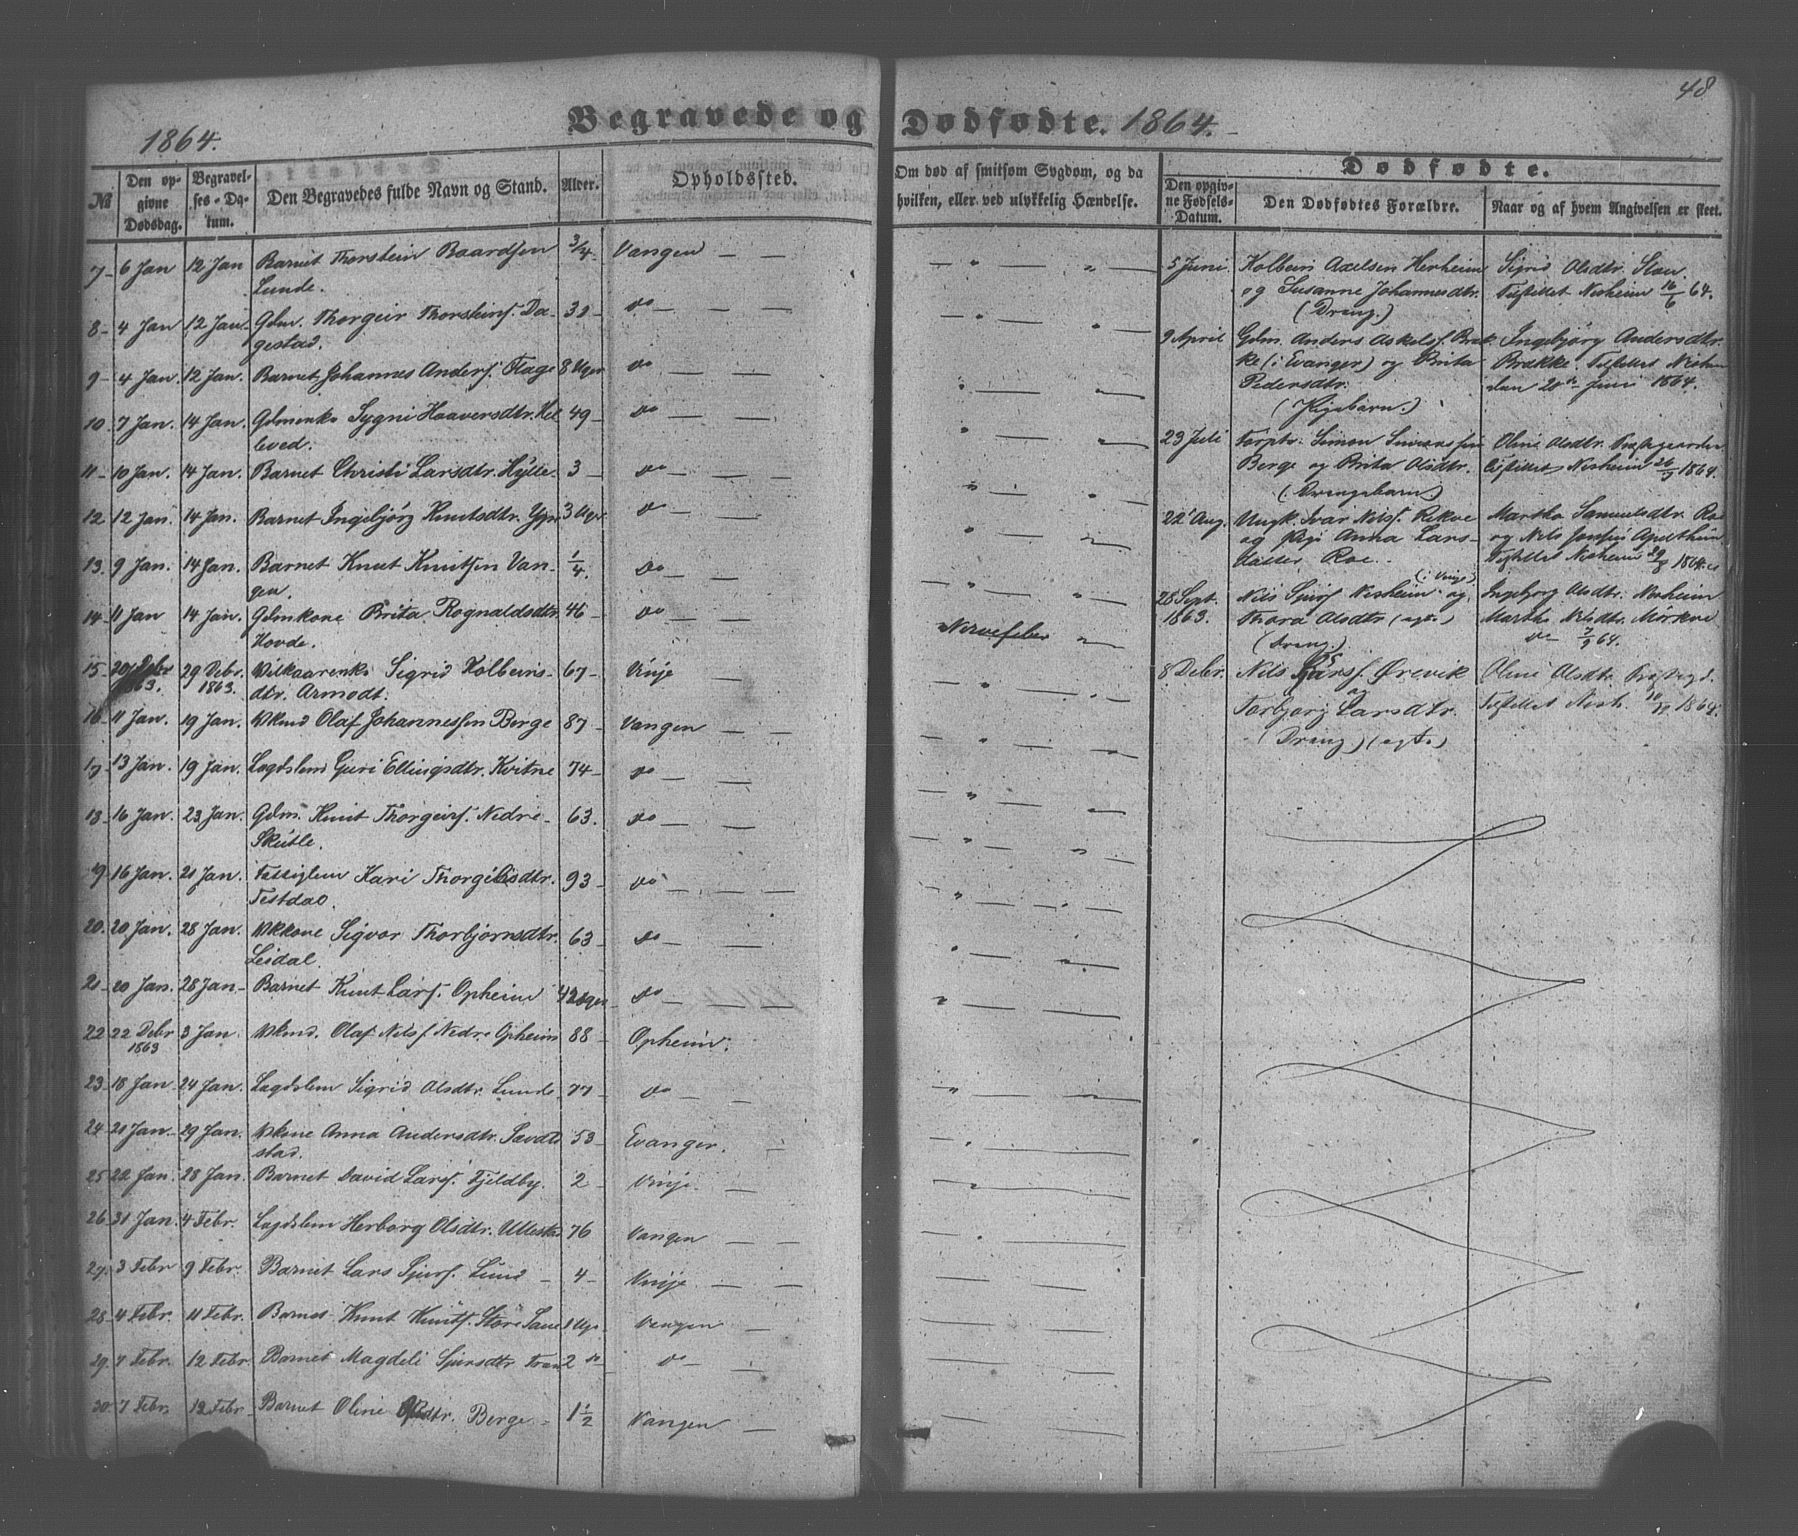 48
Begravede og Dødfødte. 1864.
1864.
No
Den opgivne Dødsdag.
Begravelses-Datum.
Den Begravedes fulde Navn og Stand.
Alder.
Opholdssted.
Om død af smitsom Sygdom, og da hvilken, eller ved ulykkelig Hændelse.
Dødfødte.
Den opgivne Fødsels-Datum.
Den Dødfødtes Forældre.
Naar og af hvem Angivelsen er skeet.
7 - 6 Jan 12 Jan Barnet Thorstein Baardsen 3/4. Vangen — —
Lunde.
8 - 4 Jan 12 Jan. Gdm. Thorgeir Thorsteins. Da- 32 - do — —
gestad.
9 - 4 Jan. 12 Jan. Barnet Johannes Anders. Flage 8 Uger do — —
10. 7 Jan. 14 Jan. Gdmenke Sygni Haaversdtr. Hel- 49 - do — —
leved.
11 - 10 Jan. 14 Jan. Barnet Christi Larsdtr. Hylle - 3 — do — —
12 12 Jan. 14 Jan. Barnet Ingebjørg Knutsdtr. 3 Uger do — —
13. 9 Jan. 14 Jan. Barnet Knut Knutsen Van- 1/4. do — —
gen.
14 - 11 Jan 14 Jan. Gdmkone Brita Rognaldsdtr. 46 - do — —
Hovde.
15 - 20 Debr 1863. 29 Debr. 1863. Vilkaarenke Sigrid Kolbeins- 67 - Vinje —
dtr. Armodt.
16 - 11 Jan. 19 Jan. Vkmd Olaf Johannessen Berge 87 - Vangen — —
17 - 13 Jan. 19 Jan. Lægdslem Guri Ellingsdtr. Kvitne 74 - do — —
18 - 16 Jan. 23 Jan. Gdm. Knut Thorgeirs. Nedre - 63. do — —
Skutle.
19. 16 Jan. 21 Jan. Fattiglem Kari Thorgilsdtr. 93 - do — — —
Testdal.
20. 20 Jan. 28 Jan. Vkkone Sigvor Thorbjørnsdtr. 63 - do — —
Leidal.
21 - 20 Jan. 28 Jan - Barnet Knut Lars. Opheim do — — —
22 22 Debr 1863 3 Jan. Vkmd. Olaf Nils. Nedre Opheim 88 - Opheim.
23 - 18 Jan - 24 Jan. Lægdslem Sigrid Olsdtr. Lunde - 77 - do — —
24 - 21 Jan - 29 Jan. Vkone Anna Andersdtr. 53 - Evanger. —
stad.
25 22 Jan. 28 Jan. Barnet David Lars. Fjeldby. 2 - Vinje. —
26 - 31 Jan. 4 Febr. Lægdslem Herborg Olsdtr. Ullestad 76 Vangen — —
27. 3 Febr 9 Febr. Barnet Lars Sjurs. Lund - 4 - Vinje — —
28 - 4 Febr. 11 Febr. Barnet Knut Knuts. Store Vangen — —
29. 7 Febr. 12 Febr. Barnet Magdeli Sjursdtr 2 do do — —
30. 7 Febr 12 Febr. Barnet Oline dtr. Berge - 1 1/2 Vangen —
Nervefeber
5 Juni Kolbein Axelsen Herheim Sigrid Olsdtr.
og Susanne Johannesdtr. Tilstillet Nesheim 16/6 64.
(Dreng.)
9 April Gdm. Anders Askels. Bræk- Ingebjørg Andersdtr.
ke (i Evanger) og Brita Brække. Tilstillet
Pedersdtr. den 20de Juni 1864.
(Pigebarn.)
23 Juli Simon
Berge og Brita Olsdtr. Oline Olsdtr. Præstegaarden
(Drengebarn) Tilstillet Nesheim 26/7 1864.
22 Aug. Ungk. Ivar Nils. Rekve Martha Samuelsdtr. Roe
og Pige Anna Lars- og Nils
datter Roe. Tilstillet Nesheim 29/8 1864.
28 Sept. 1863. Nils Sjurs. Nesheim (i Vinje) og Ingebjorg Olsdtr. Nesheim
Thora Olsdtr (ægte) Martha Nilsdtr. Mørkve
(Dreng) do 7/9 64.
8 Debr. Nils Ørevik Oline Olsdtr.
og
Torbjorg Larsdtr. Tilstillet Nesh. 1864.
(Dreng) (ægte)